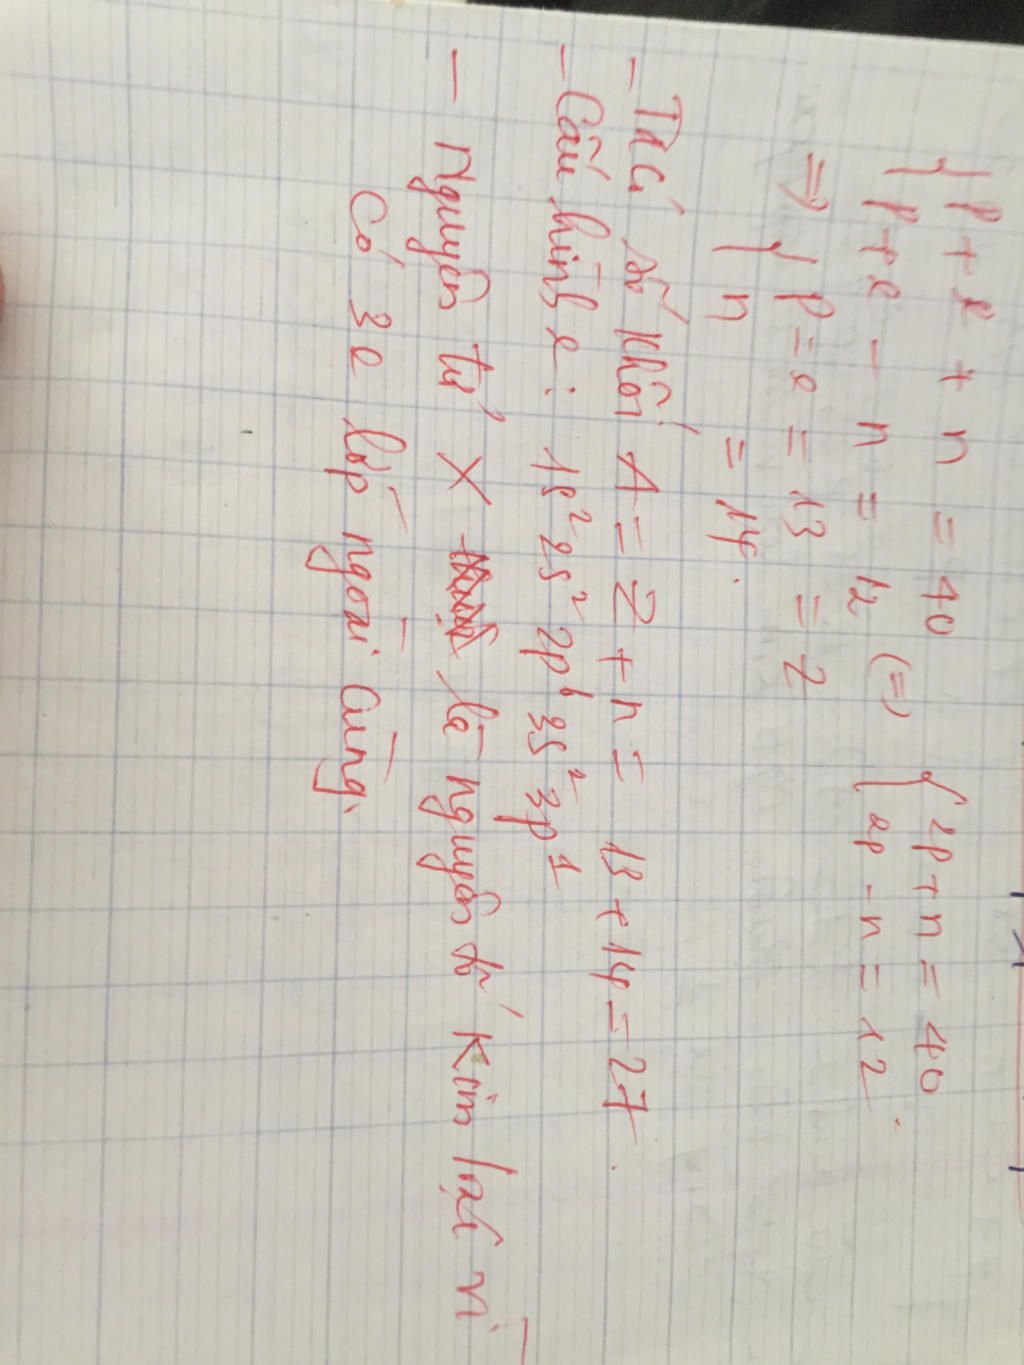 { p + e + n = 40
{ p + e - n = 12 (=) { 2p + n = 40
{ 2p - n = 12.
=> { p = e = 13 = Z
{ n = 14.
- Ta có số khối A = Z + n = 13 + 14 = 27.
- Cấu hình e: 1s² 2s² 2p⁶ 3s² 3p¹
- Nguyên tử X là nguyên tố Kim loại vì
có 3e lớp ngoài cùng.